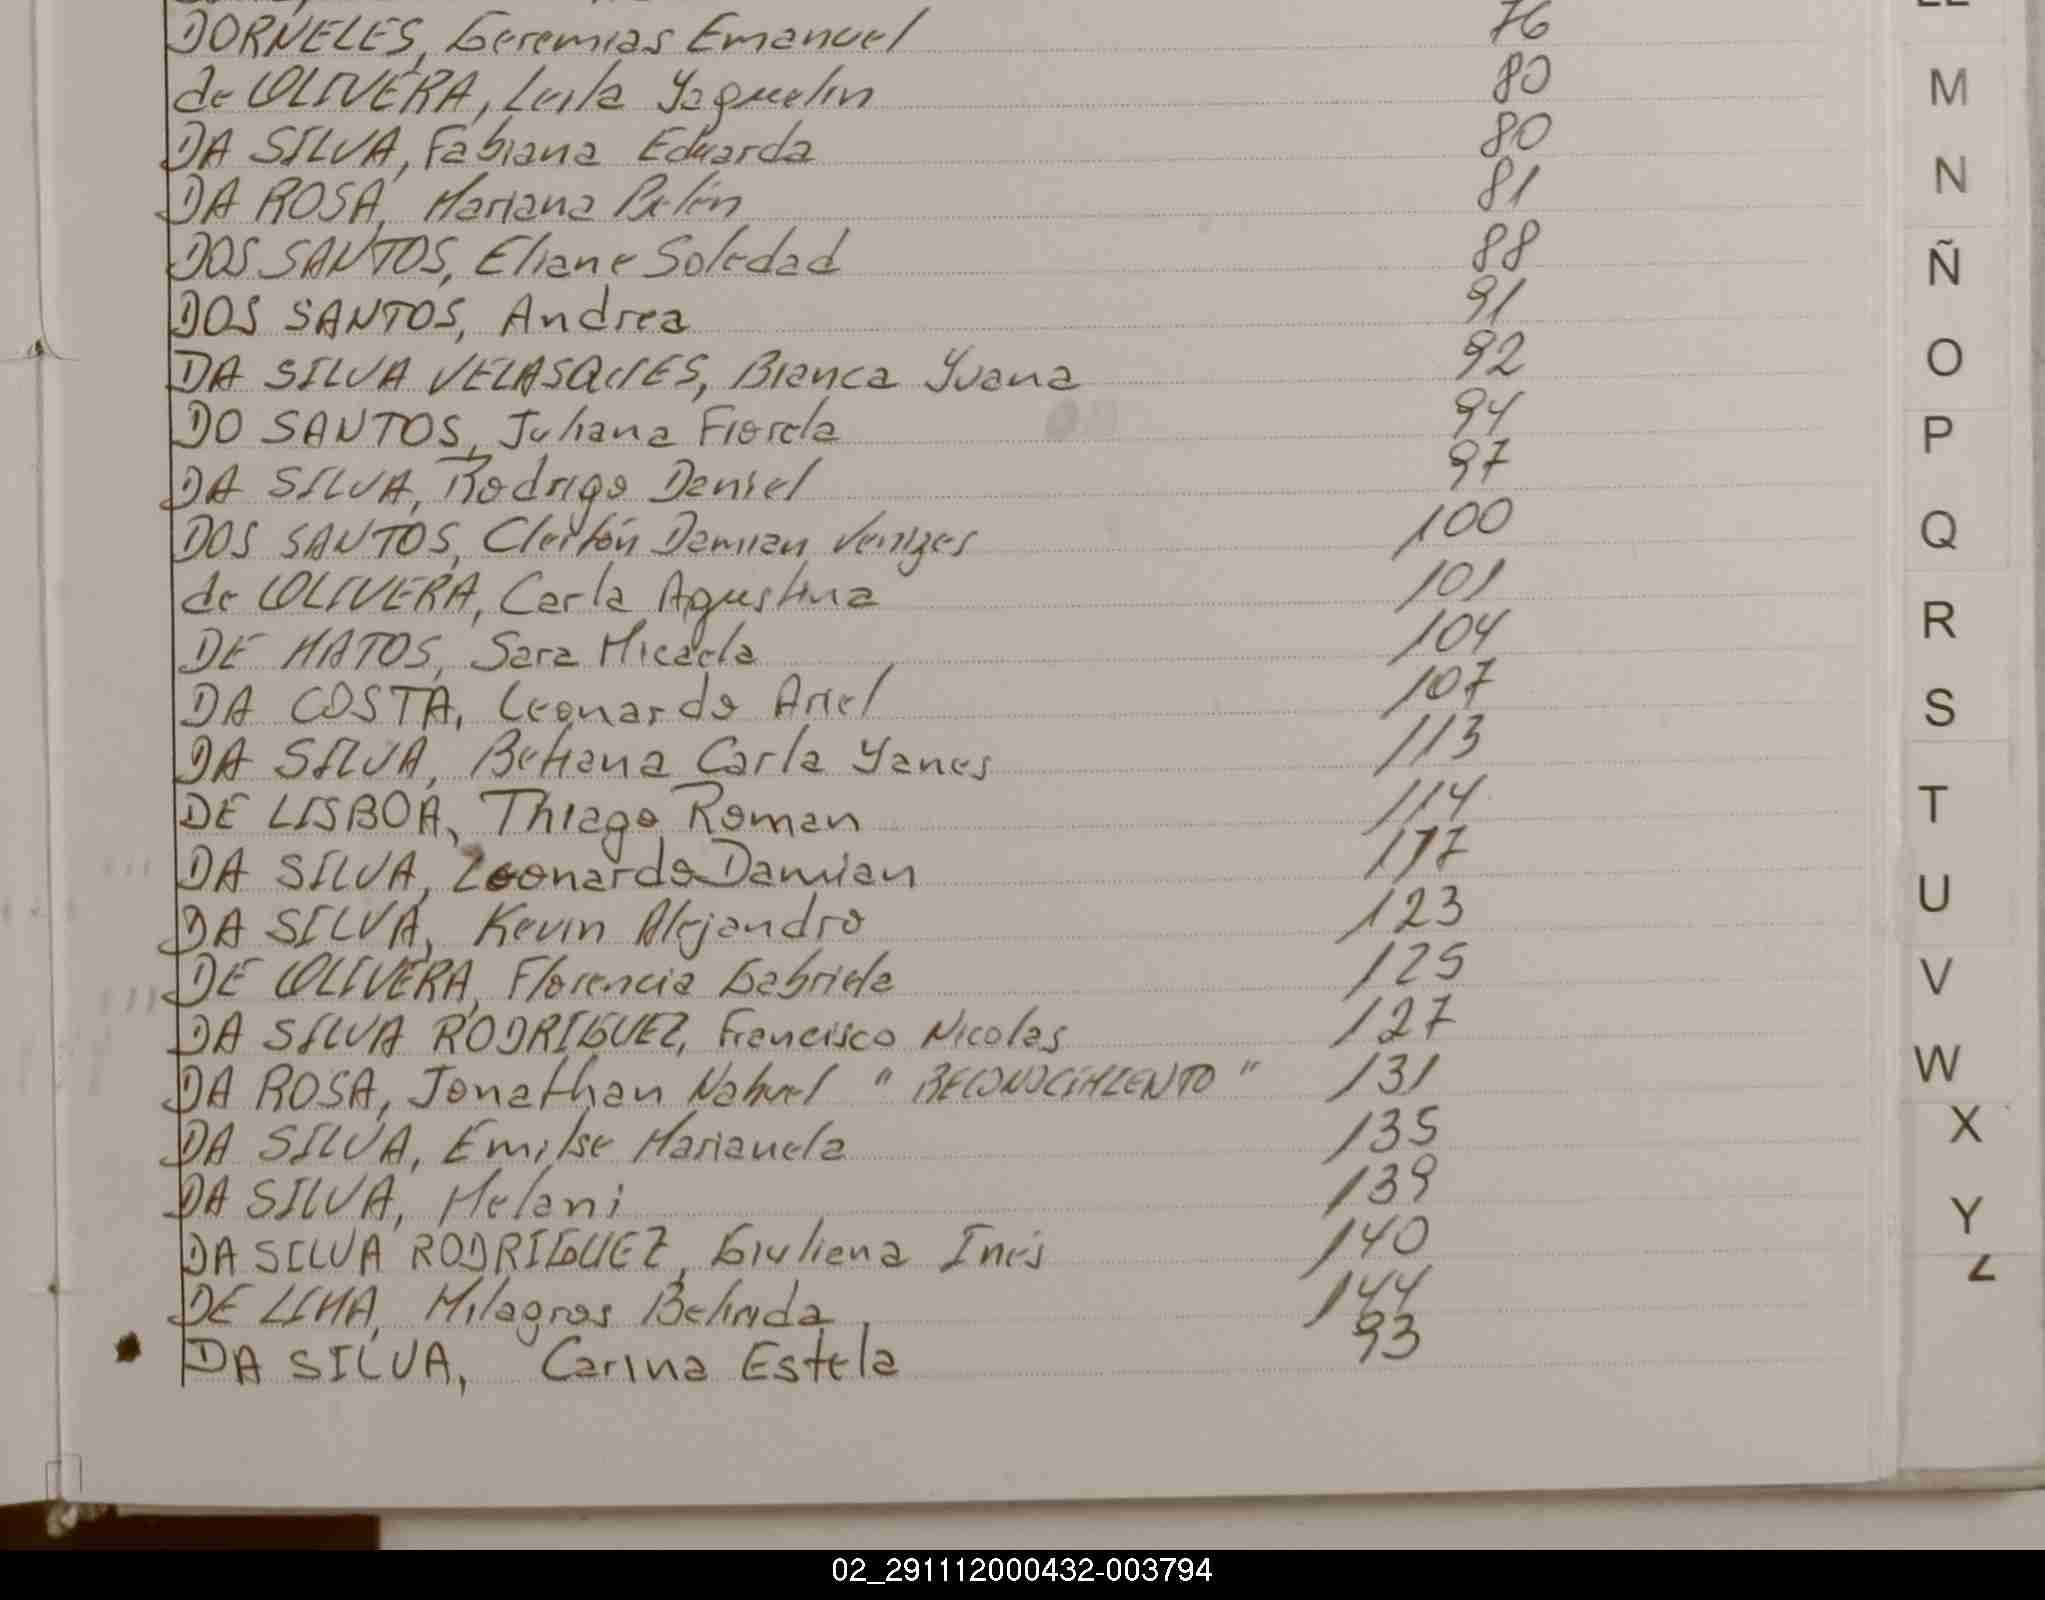 DORNELES, Geremias Emanuel 76
de OLIVERA, Leila Yaquelin 80
DA SILVA, Fabiana Eduarda 80
DA ROSA, Mariana Belén 81
DOS SANTOS, Eliane Soledad 88
DOS SANTOS, Andrea 91
DA SILVA VELASQUES, Bianca Yvana 92
DO SANTOS, Juliana Fiorela 94
DA SILVA, Rodrigo Daniel 97
DOS SANTOS, Cleitón Damian 100
de OLIVERA, Carla Agustina 101
DE MATOS, Sara Micaela 104
DA COSTA, Leonardo Ariel 107
DA SILVA, Betiana Carla Yanes 113
DE LISBOA, Thiago Roman 114
DA SILVA, Leonardo Damian 117
DA SILVA, Kevin Alejandro 123
DE OLIVERA, Florencia Gabriela 125
DA SILVA RODRIGUEZ, Francisco Nicolas 127
DA ROSA, Jonathan Nahuel "RECONOCIMIENTO" 131
DA SILVA, Emilse Marianela 135
DA SILVA, Melani 139
DA SILVA RODRIGUEZ, Giuliena Inés 140
DE LIMA, Milagros Belinda 144
DA SILVA, Carina Estela 93
LL
M
N
Ñ
O
P
Q
R
S
T
U
V
W
X
Y
Z
02_291112000432-003794